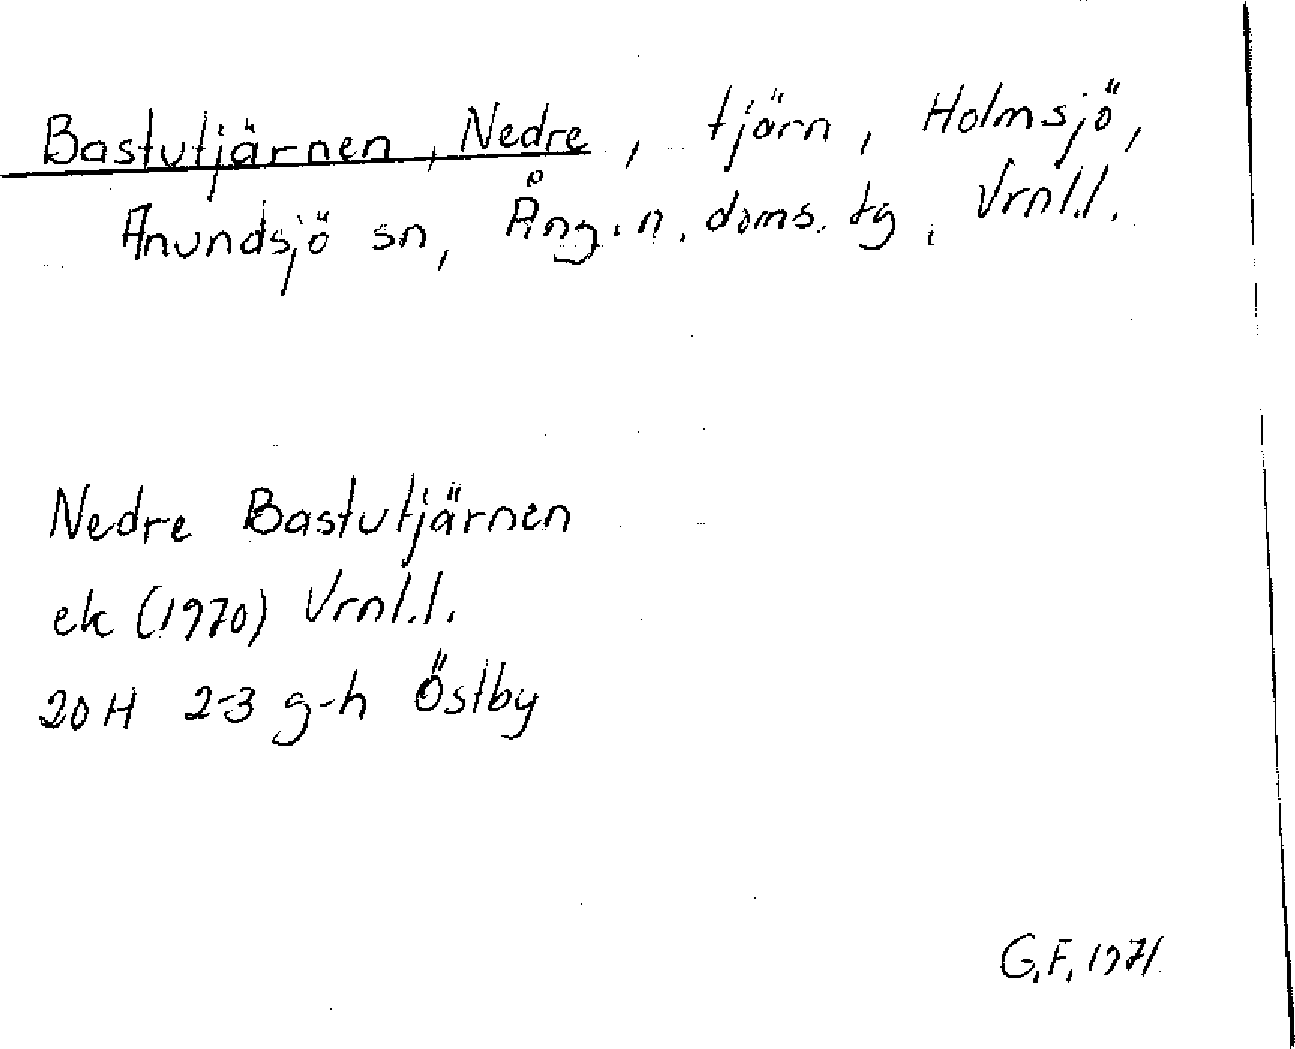 Bastutjärnen, Nedre, tjärn, Holmsjö,
Anundsjö sn, Ång. n. doms. tg, Vrnl.l.
Nedre Bastutjärnen
ek (1970) Vrnl.l.
20 H 2-3 g-h Östby
G.F. 1971